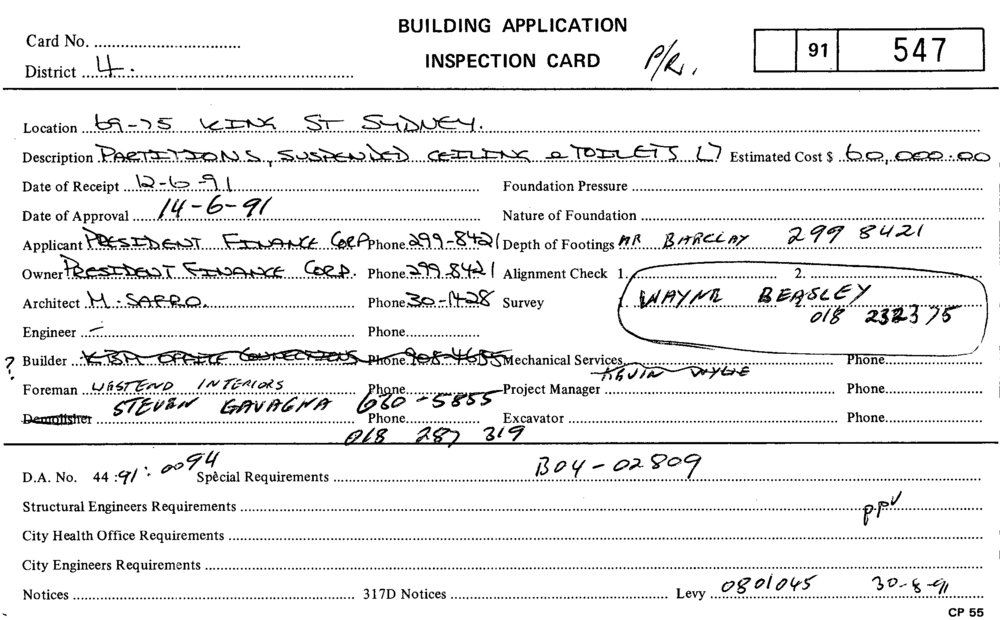 BUILDING APPLICATION
Card No.
91 547
INSPECTION CARD P/R.
District 4.
Location 69-75 KING ST SYDNEY.
Description PARTITIONS, SUSPENDED CEILING & TOILETS L7 Estimated Cost $ 60,000.00
Date of Receipt 12-6-91 Foundation Pressure
Date of Approval 14-6-91 Nature of Foundation
Applicant PRESIDENT FINANCE CORP Phone 299-8421 Depth of Footings MR BARCLAY 299 8421
Owner PRESIDENT FINANCE CORP. Phone 299 8421 Alignment Check 1. 2.
Architect M. SAPRO. Phone 30-1428 Survey 1. WAYNE BEASLEY
018 232375
Engineer - Phone
? Builder KBM OFFICE CONNECTIONS Phone 908-4655 Mechanical Services Phone
Foreman WESTEND INTERIORS Phone Project Manager KEVIN WYLIE Phone
Demolisher STEVEN GAVAGNA Phone 660-5855 Excavator Phone
018 287 319
D.A. No. 44:91:0094 Special Requirements B04-02809
Structural Engineers Requirements ppv
City Health Office Requirements
City Engineers Requirements
Notices 317D Notices Levy 0801045 30-8-91
CP 55